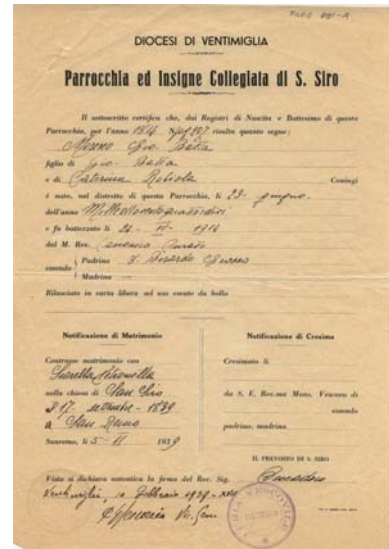 DIOCESI DI VENTIMIGLIA
Parrocchia ed Insigne Collegiata di S. Siro
Il sottoscritto certifica che, dai Registri di Nascita e Battesimo di questa
Parrocchia, per l'anno 1814 risulta quanto segue:
Gio. Batta
figlio di Gio. Batta
e di Caterina Coniugi
è nato, nel distretto di questa Parrocchia, li 23 giugno
dell'anno
e fu battezzato li 24 - VI - 1814
dal M. Rev.
essendo
Padrino
Madrina —
Rilasciato in carta libera ad uso esente da bollo
Notificazione di Matrimonio
Contrasse matrimonio con
nella chiesa di San Siro
il 17 settembre - 1839
a San Remo
Sanremo, li 5 - II 1939
Notificazione di Cresima
Cresimato li
da S. E. Rev.ma Mons. Vescovo di
essendo
padrino, madrina
IL PREVOSTO DI S. SIRO
Visto si dichiara autentica la firma del Rev. Sig.
Ventimiglia, 10 Febbraio 1939 - XVII
Vic. Gen.